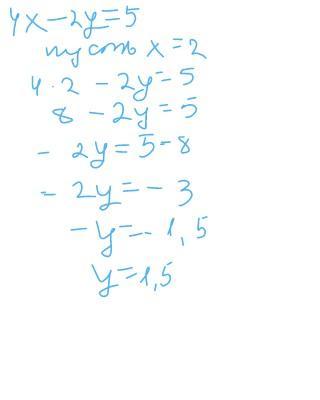 4x-2y=5
пусть x=2
4·2-2y=5
8-2y=5
-2y=5-8
-2y=-3
-y=-1,5
y=1,5